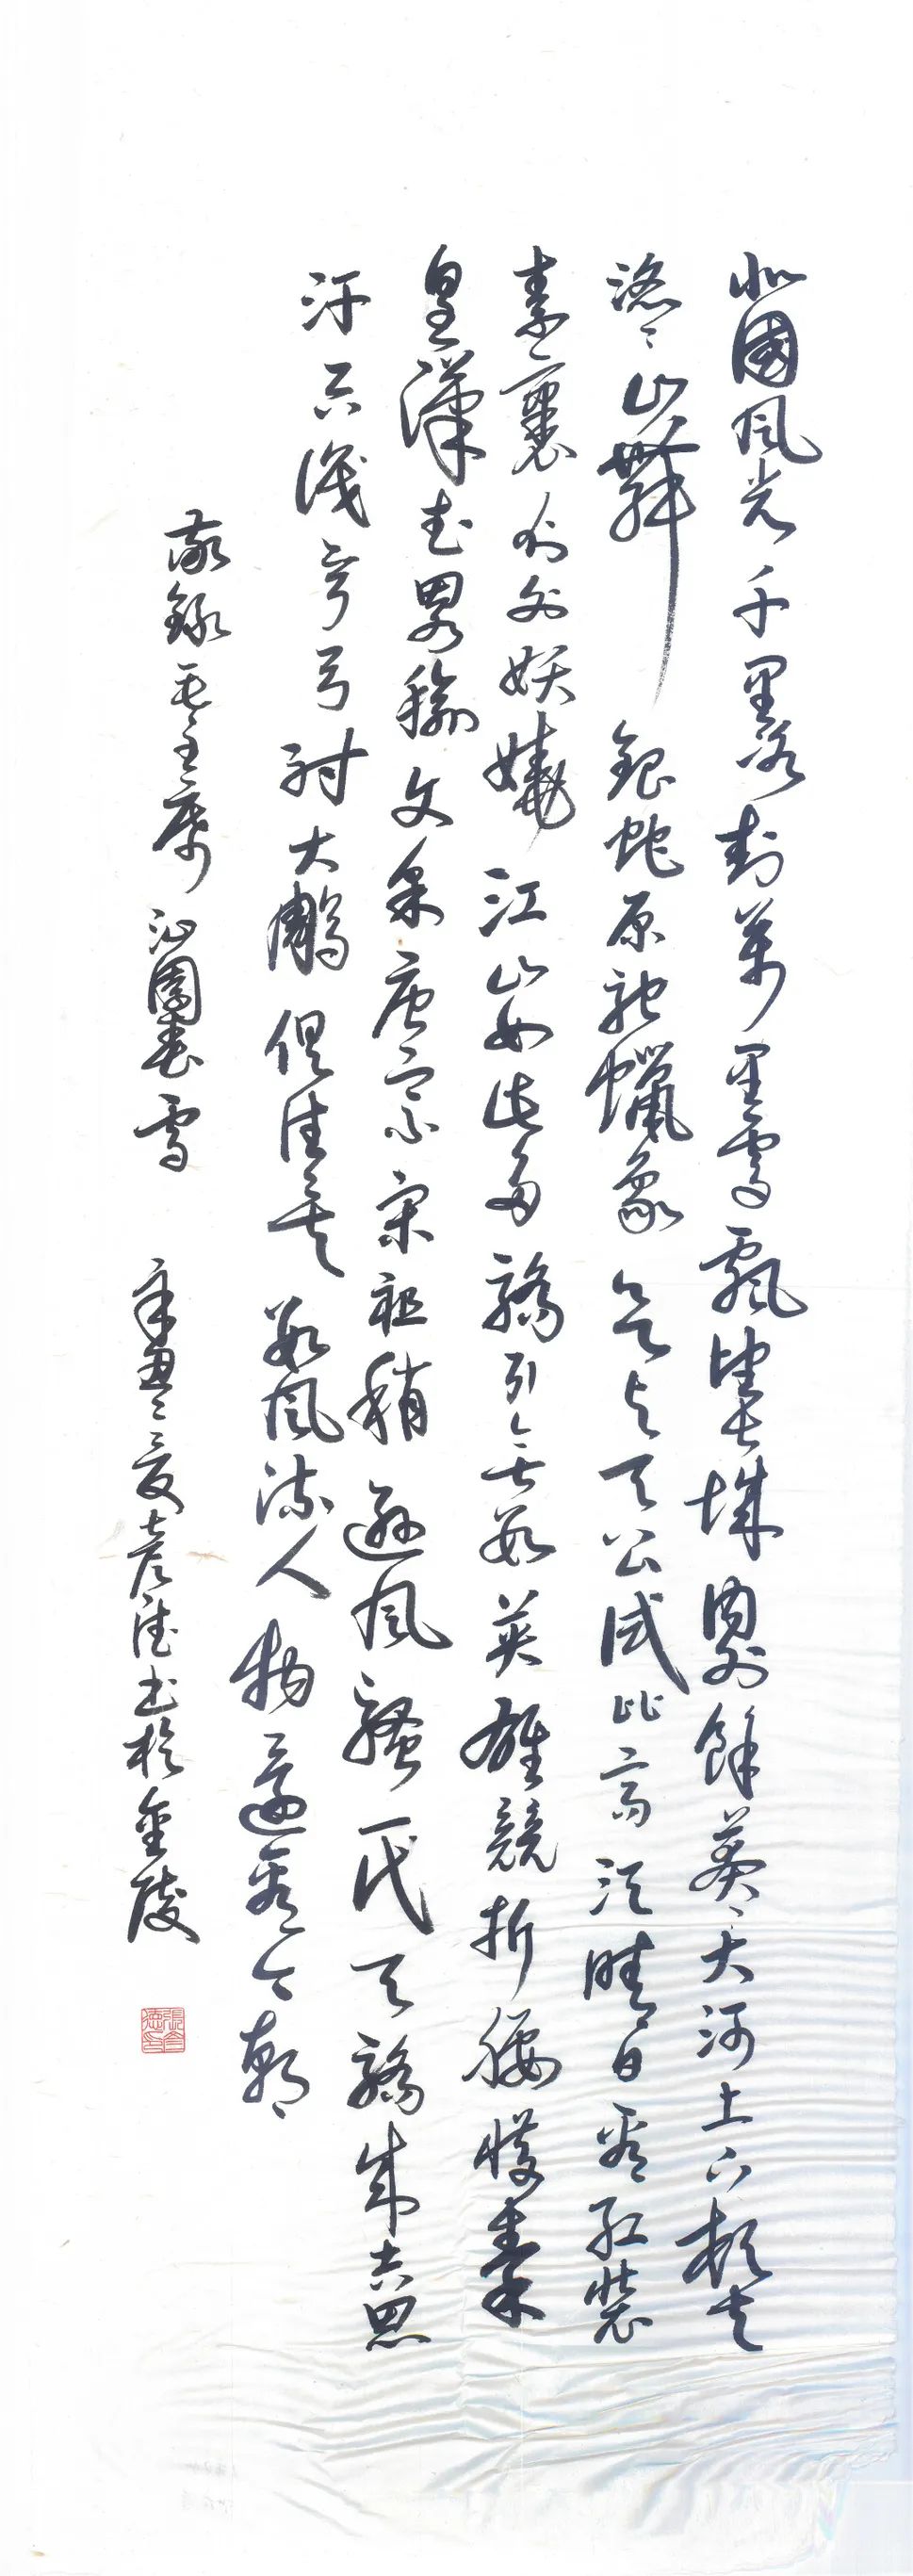 北國風光千里冰封萬里雪飄望長城內外餘莽々大河上下頓失
滔々山舞銀蛇原馳蠟象欲與天公試比高須晴日看紅裝
素裹分外妖嬈江山如此多嬌引無數英雄競折腰惜秦
皇漢武略輸文采唐宗宋祖稍遜風騷一代天驕成吉思
汗只識彎弓射大鵰俱往矣數風流人物還看今朝
敬錄毛主席沁園春雪 辛丑之夏书於金陵